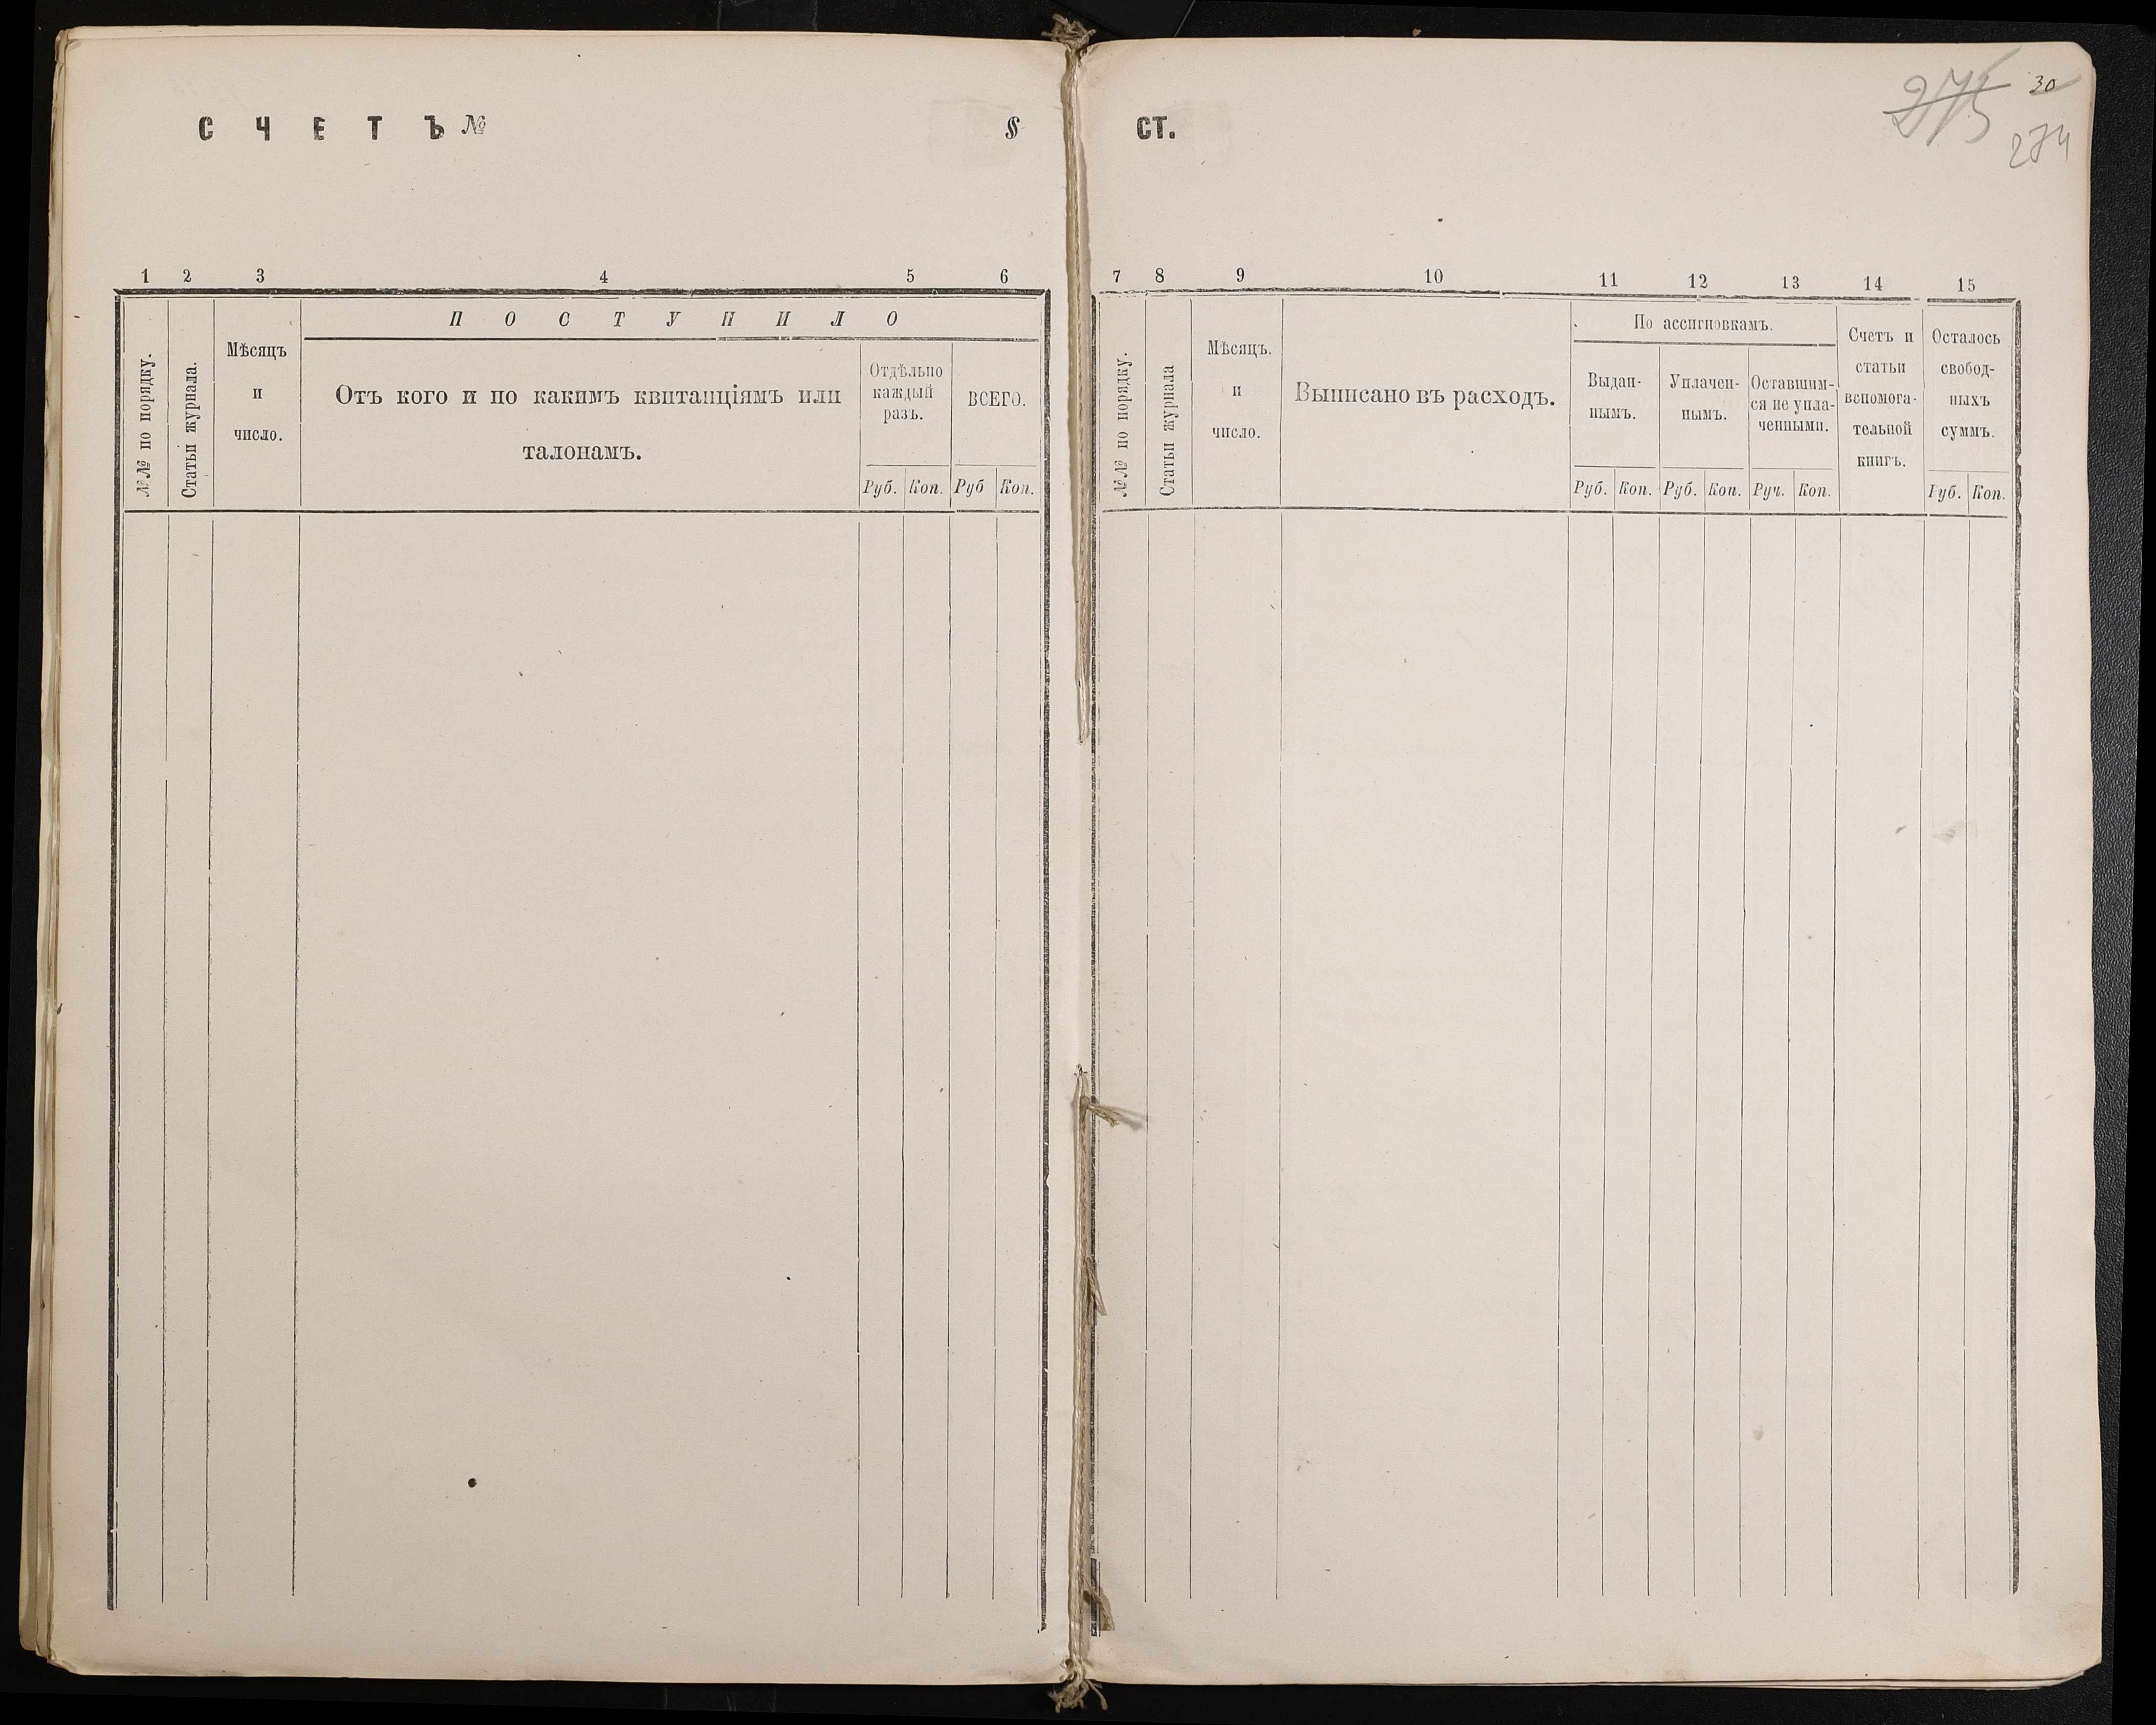 СЧЕТЪ № § СТ.
275 30
274
1 2 3 4 5 6 7 8 9 10 11 12 13 14 15
№№ по порядку.
Статьи журнала.
Мѣсяцъ
и
число.
ПОСТУПИЛО
Отъ кого и по какимъ квитанціямъ или
талонамъ.
Отдѣльно
каждый
разъ.
ВСЕГО.
Руб. Коп. Руб Коп.
№№ по порядку.
Статьи журнала
Мѣсяцъ.
и
число.
Выписано въ расходъ.
По ассигновкамъ.
Выдан-
нымъ.
Уплачен-
нымъ.
Оставшим-
ся не упла-
ченными.
Руб. Коп. Руб. Коп. Руч. Коп.
Счетъ и
статьи
вспомога-
тельной
книгъ.
Осталось
свобод-
ныхъ
суммъ.
Руб. Коп.